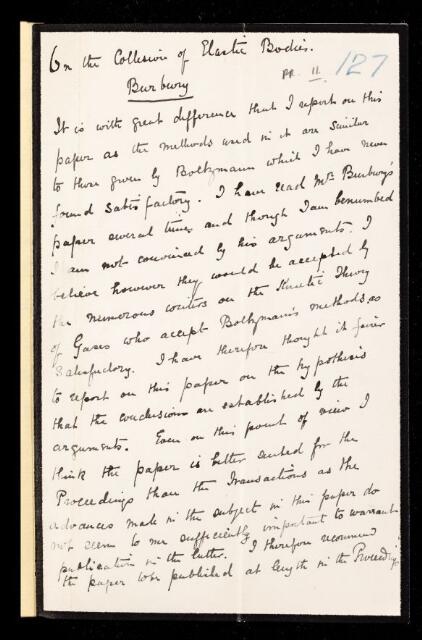 On the Collision of Elastic Bodies.
Burbury
PR. 11. 127
It is with great difference that I report on this
paper as the methods used in it are similar
to those given by Boltzmann which I have never
found satisfactory. I have read Mr Burbury's
paper several times and though I am benumbed
I am not convinced by his arguments. I
believe however they would be accepted by
the numerous writers on the Kinetic Theory
of Gases who accept Boltzmann's methods as
satisfactory. I have therefore thought it fairer
to report on this paper on the hypothesis
that the conclusions are established by the
arguments. Even on this point of view I
think the paper is better suited for the
Proceedings than the Transactions as the
advances made in the subject in this paper do
not seem to me sufficiently important to warrant
publication in the latter. I therefore recommend
the paper to be published at length in the Proceedings